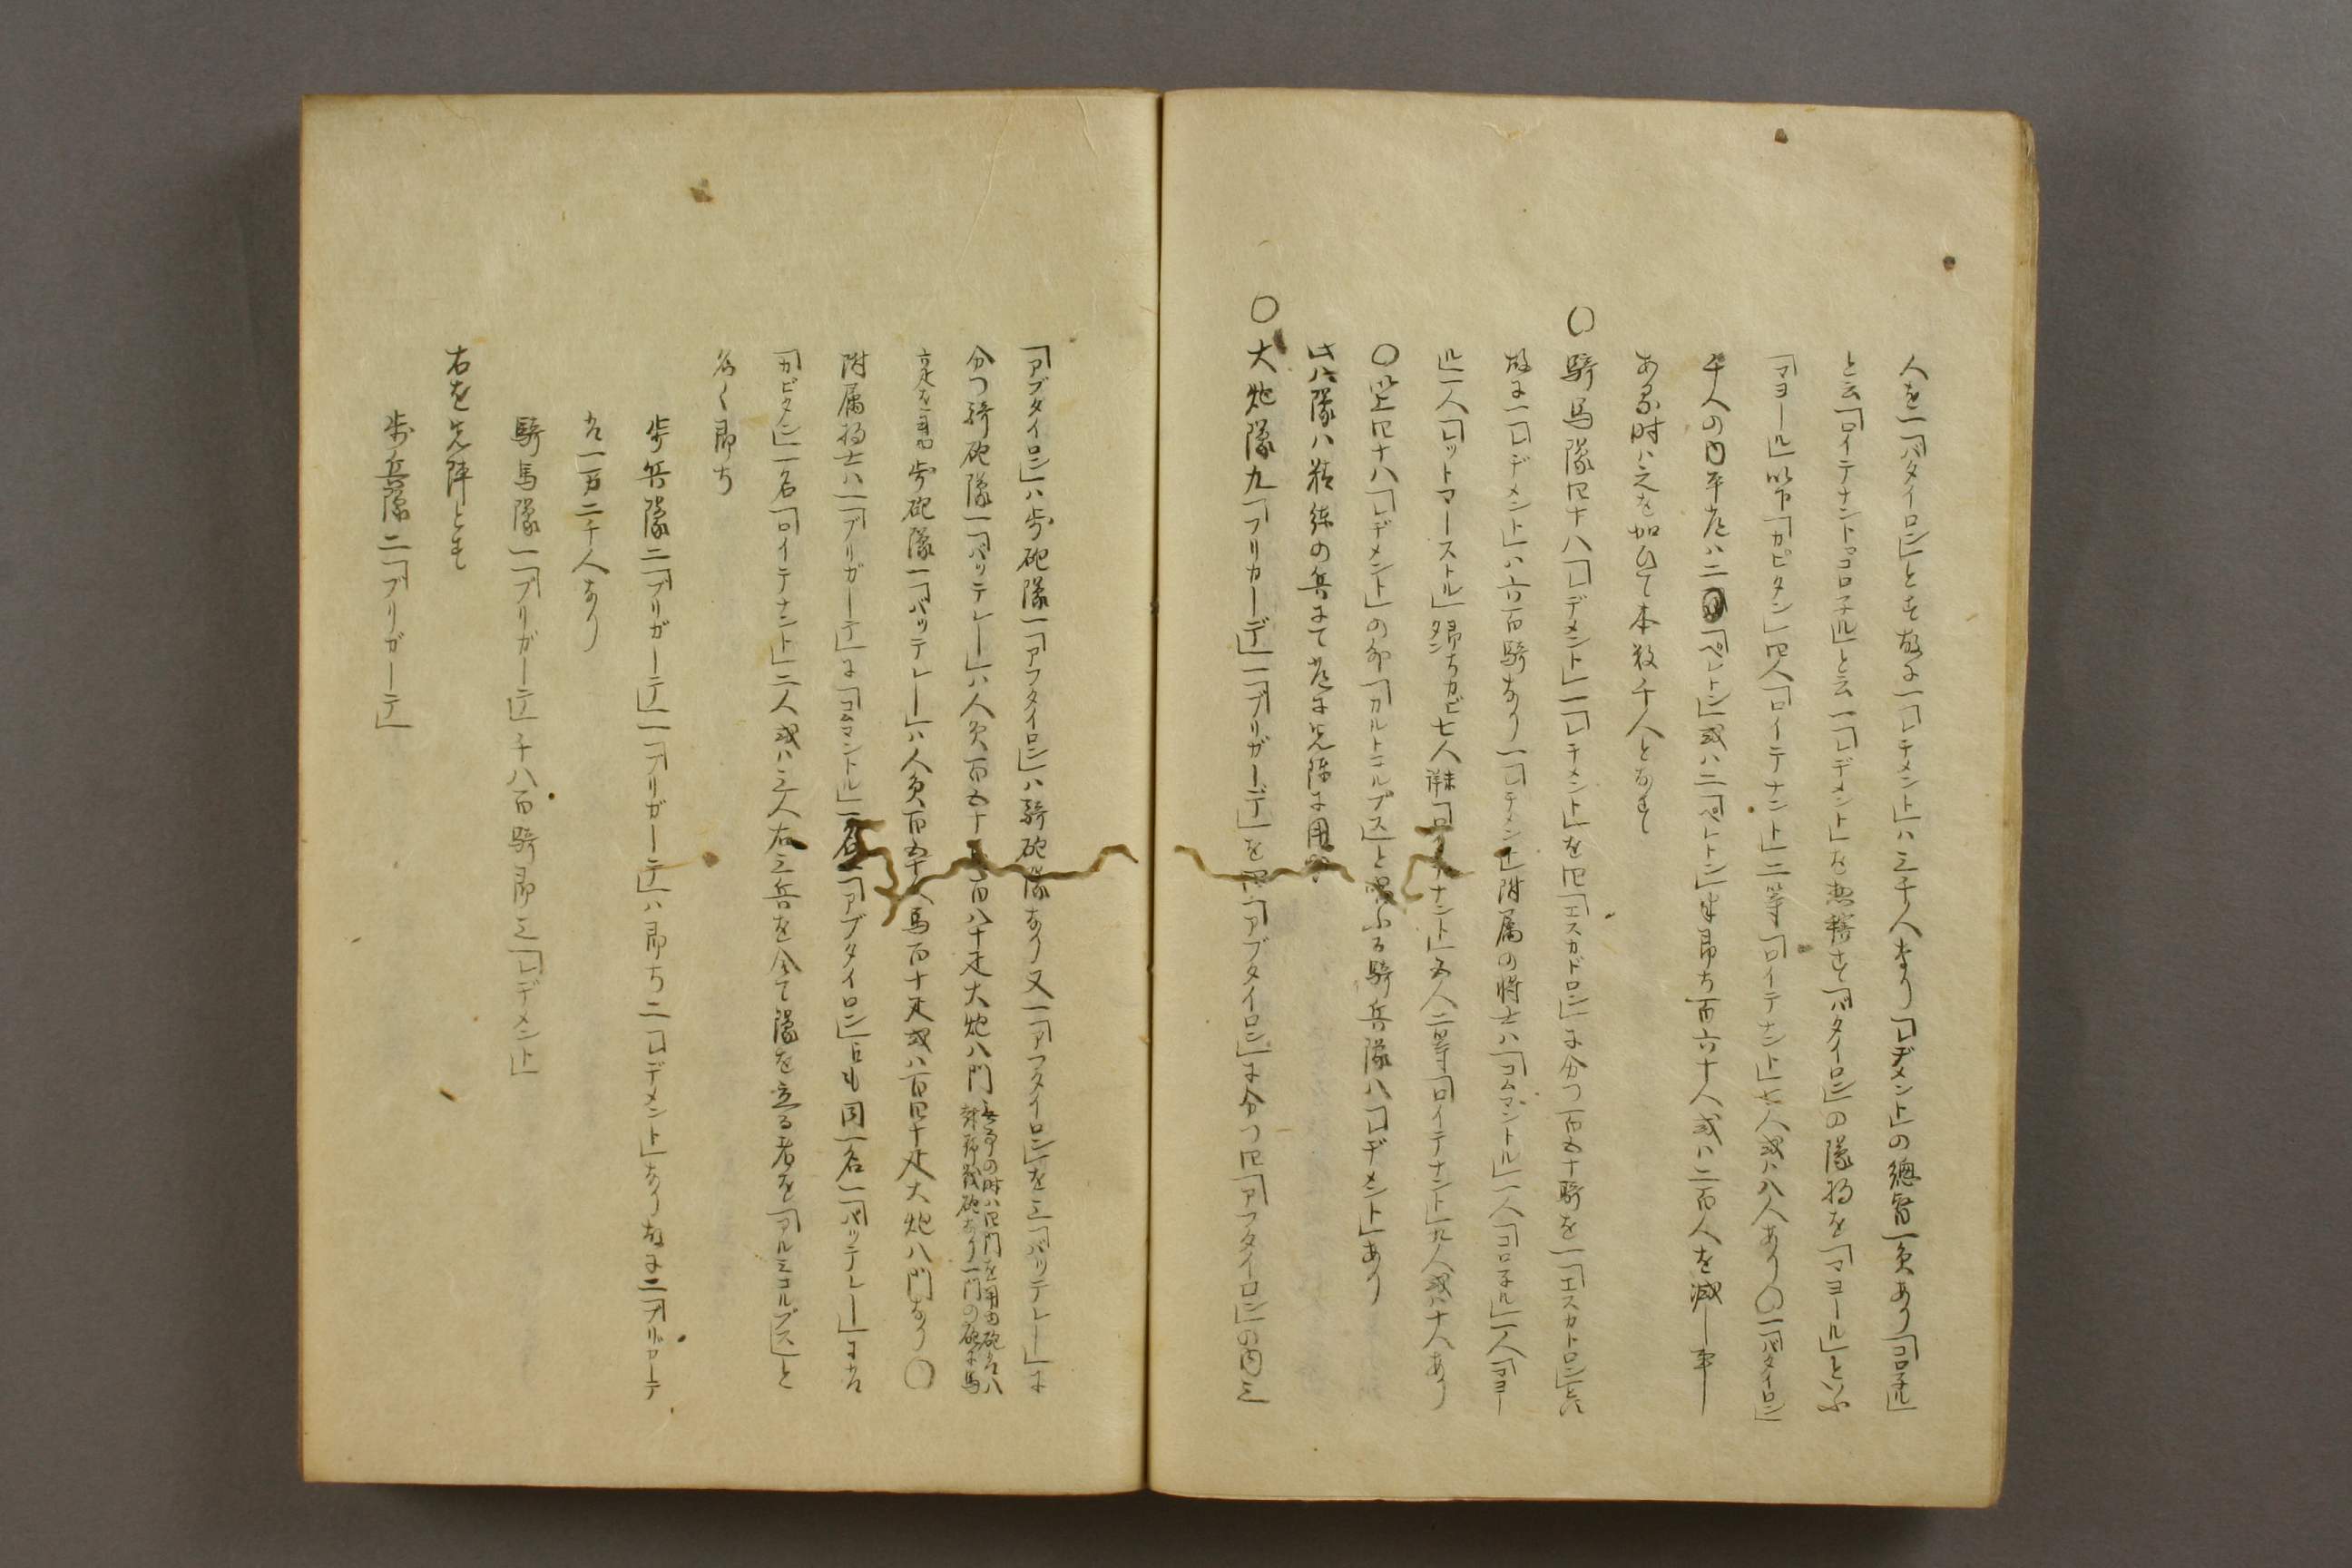 人を一「バタイロン」とす故に一「レヂメント」ハ三千人なり「レヂメント」の總督一負あり「コロネル」
と云「ロイテナントコロネル」と云一「レヂメント」を惣轄す「バタイロン」の隊将を「マヨール」といふ
「マヨール」以下「カピタン」四人「ロイテナント」二等「ロイテナント」七人或ハ八人あり〇一「バタイロン」
千人の内平常ハ二「ペレトン」或ハ二「ペレトン」半即ち百六十人或ハ二百人を減し
ある時ハ之を加ひて本数千人となす
〇騎馬隊四十八「レデメント」一「レヂメント」を四「エスカドロン」に分つ百五十騎を一「エスカトロン」とす
故に一「レデメント」ハ六百騎なり一「レヂメント」附属の將士ハ「コムマントル」一人「コロネル」一人「マヨー
ル」一人「リットマーストル」即ちカピタン七人「ロイテナント」五人二等「ロイテナント」九人或ハ十人あり
〇以上四十八「レヂメント」の外「ガルトコルプス」と唱ふる騎兵隊八「レヂメント」あり
此八隊ハ精練の兵にて常に先陣に用ゆ
〇大炮隊九「ブリカーデ」一「ブリガーデ」を四「アブタイロン」に分つ四「アフタイロン」の内三
「アブタイロン」ハ歩砲隊一「アフタイロン」ハ騎砲隊なり又一「アフタイロン」を三「バッテレー」に
分つ騎砲隊一「バッテレー」ハ人負百五十馬百八十疋大炮八門無事の時ハ四門を用由砲名ハ
一門の砲に馬
六疋を用る歩砲隊一「バッテレー」ハ人負百五十人馬百十疋或ハ百四十疋大炮八門なり〇
附属将士ハ一「ブリガーデ」に「コムマントル」一名一「アブタイロン」にも同一名一「バッテレー」にハ
「カピタン」一名「ロイテナント」二人或ハ三人右三兵を合て隊を立る者を「アルミコルプス」と
名く即ち
歩兵隊二「ブリガーデ」一「ブリガーデ」ハ即ち二「レデメント」なり故に二「ブリガーテ
」一万二千人なり
騎馬隊一「ブリガーデ」千八百騎即三「レデメント」
右を先陣とす
歩兵隊二「ブリガーデ」